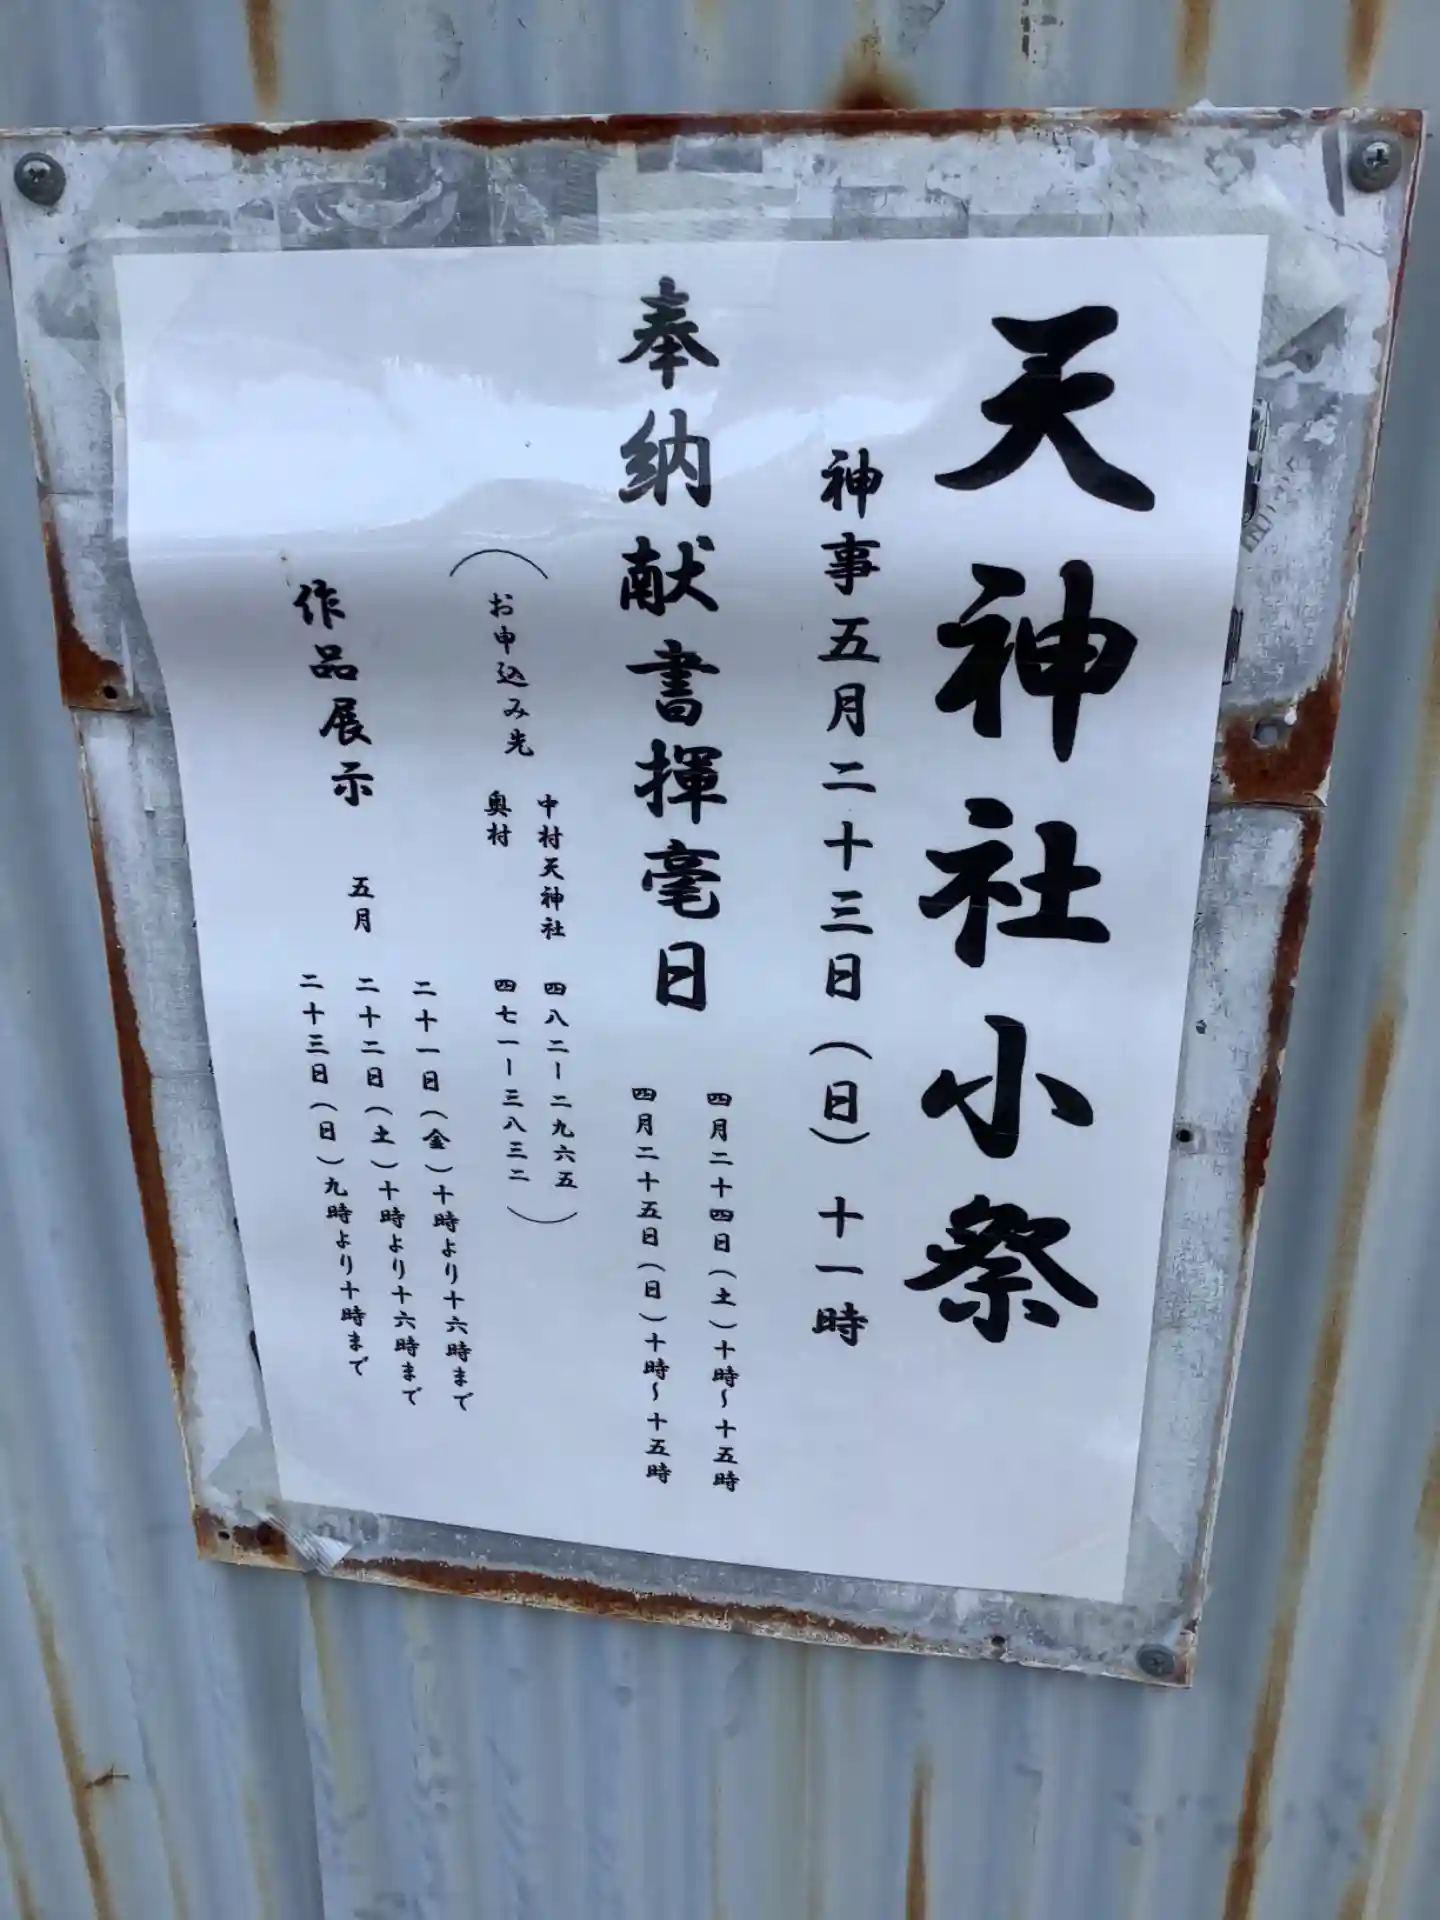 天神社小祭
神事五月二十三日(日) 十一時
奉納献書揮毫日
四月二十四日(土)十時~十五時
四月二十五日(日)十時~十五時
(お申込み先
中村天神社 四八二ー二九六五
奥村 四七一ー三八三二)
作品展示 五月
二十一日(金)十時より十六時まで
二十二日(土)十時より十六時まで
二十三日(日)九時より十時まで